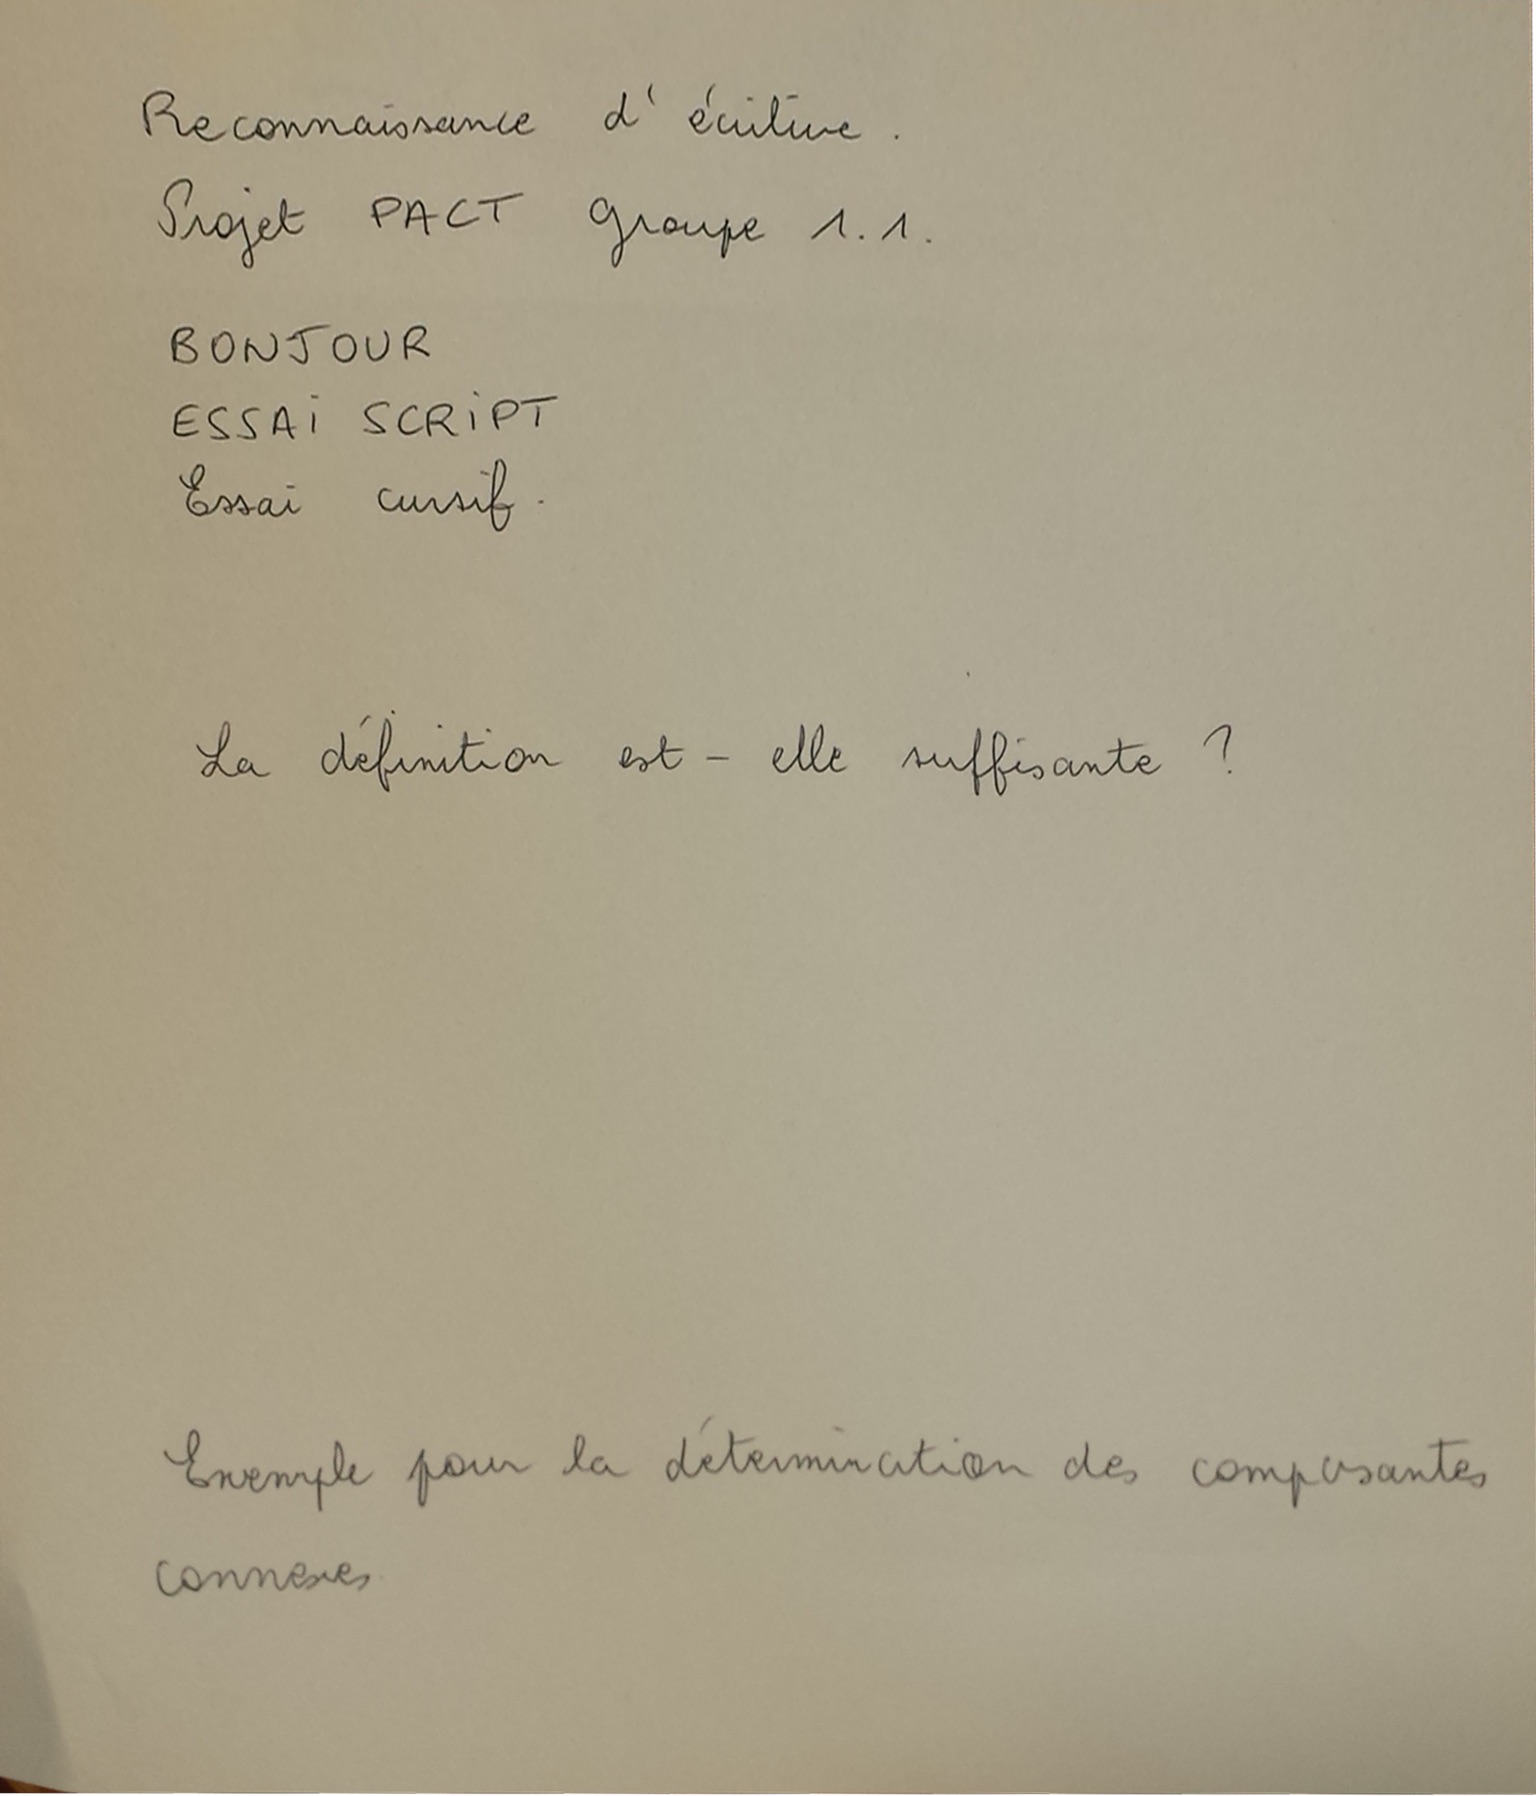 Reconnaissance d'écriture.
Projet PACT Groupe 1.1.
BONJOUR
ESSAi SCRiPT
Essai cursif.
La définition est-elle suffisante ?
Exemple pour la détermination des composantes
connexes